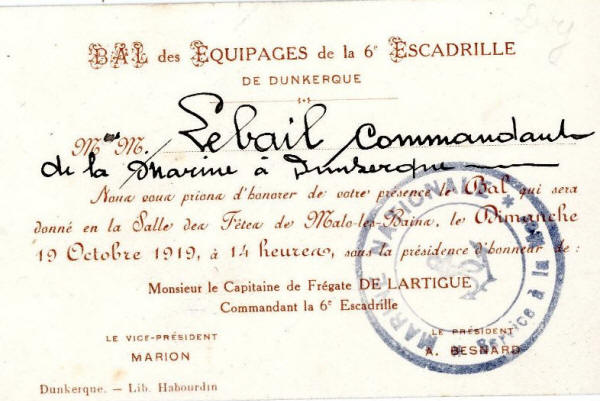 BAL des EQUIPAGES de la 6e ESCADRILLE
DE DUNKERQUE
M M. Lebail Commandant
de la Marine à Dunkerque
Nous vous prions d'honorer de votre présence le Bal qui sera
donné en la Salle des Fêtes de Malo-les-Bains, le Dimanche
19 Octobre 1919, à 14 heures, sous la présidence d'honneur de :
Monsieur le Capitaine de Frégate DE LARTIGUE
Commandant la 6e Escadrille
LE VICE-PRÉSIDENT
MARION
LE PRÉSIDENT
A. BESNARD
MARINE NATIONALE * Service à la
Dunkerque. — Lib. Habourdin